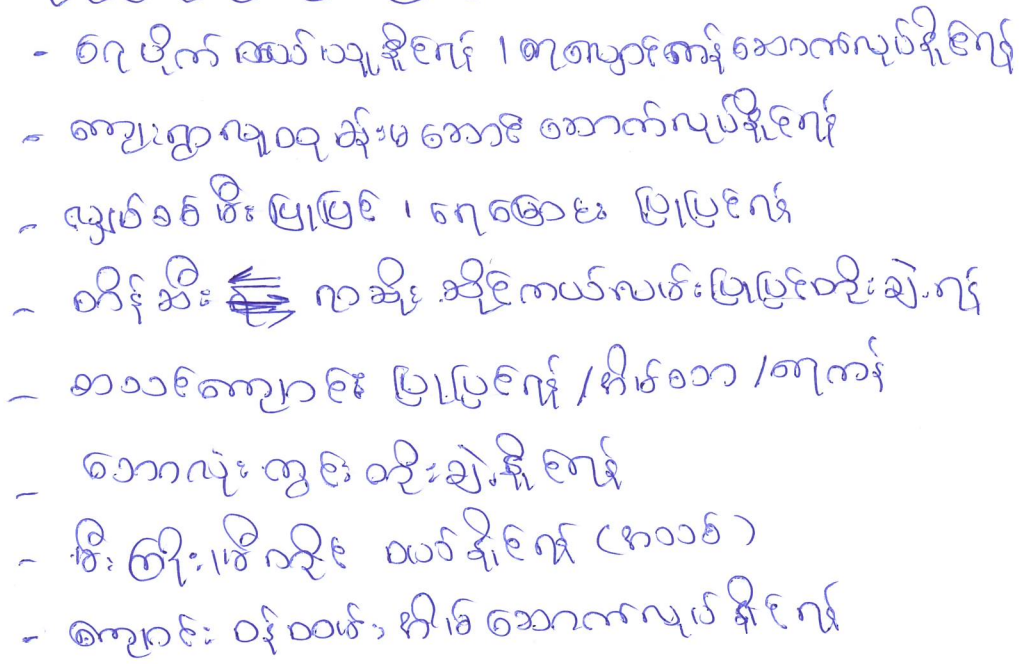 - ရေပိုက် ဝယ်ယူနိုင်ရန် ၊ ရေလှောင်ကန် ဆောက်လုပ်နိုင်ရန်
- ကျေးရွာလူထု ခန်းမဆောင် ဆောက်လုပ်နိုင်ရန်
- လျှပ်စစ်မီးပြုပြင် ၊ ရေမြောင်း ပြုပြင်ရန်
- တိန်ဆီး ရာဆိုး ဆိုင်ကယ်လမ်းပြုပြင်တိုးချဲ့ရန်
- စာသင်ကျောင်း ပြုပြင်ရန် / အိမ်သာ / ရေကန်
- ဘောလုံးကွင်း တိုးချဲ့နိုင်ရန်
- မီးကြိုး ၊ မီးတိုင် ဝယ်နိုင်ရန် (အသစ်)
- ကျောင်းဝန်ထမ်း အိမ်ဆောက်လုပ်နိုင်ရန်